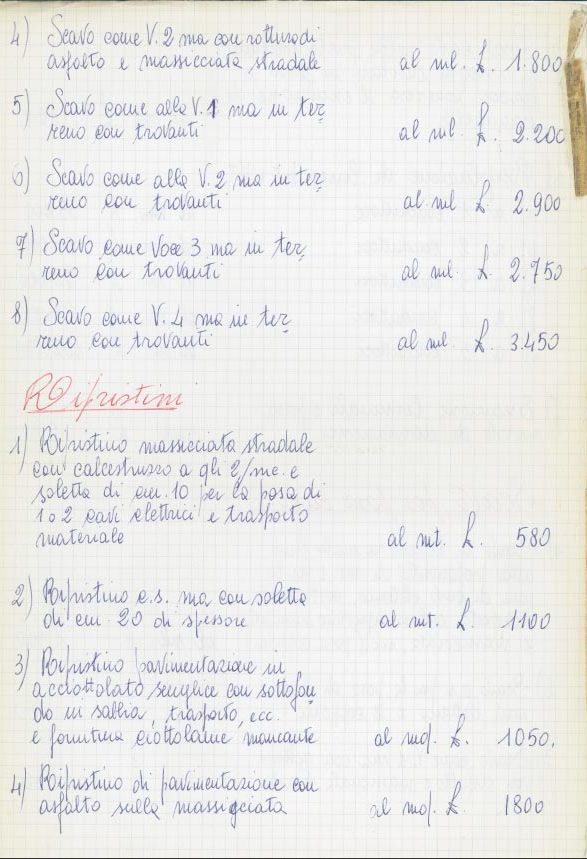 4) Scavo come V. 2 ma con rottura di
asfalto e massicciata stradale al ml. £. 1.800
5) Scavo come alla V. 1 ma in ter=
reno con trovanti al ml. £. 2.200
6) Scavo come alla V. 2 ma in ter=
reno con trovanti al ml £. 2.900
7) Scavo come Voce 3 ma in ter=
reno con trovanti al ml. £. 2.750
8) Scavo come V. 4 ma in ter=
reno con trovanti al ml. £. 3.450
Ripristini
1) Ripristino massicciata stradale
con calcestruzzo a qli 2/mc. e
soletta di cm. 10 per la posa di
1 o 2 cavi elettrici e trasporto
materiale al mt. £. 580
2) Ripristino c.s. ma con soletta
di cm. 20 di spessore al mt. £. 1100
3) Ripristino pavimentazione in
acciottolato semplice con sottofon
do in sabbia, trasporto, ecc.
e fornitura ciottolame mancante al mq. £. 1050.
4) Ripristino di pavimentazione con
asfalto sulla massicciata al mq. £. 1800